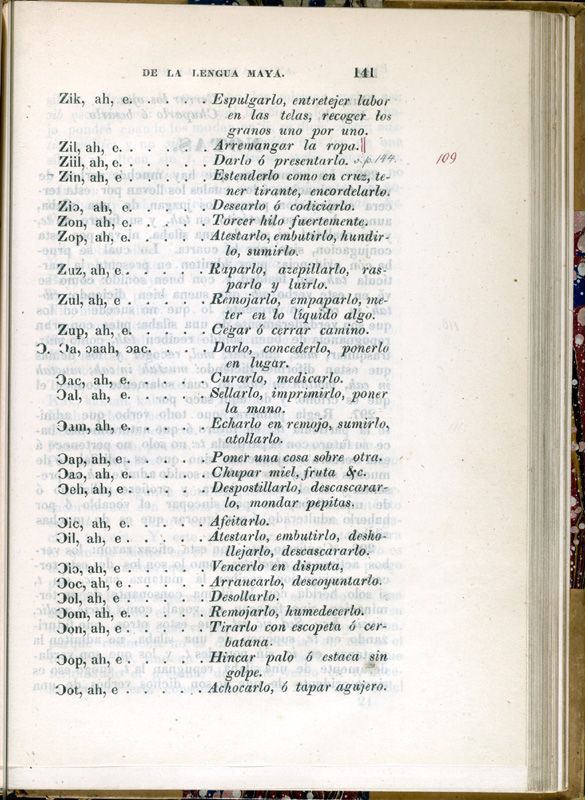 DE LA LENGUA MAYA. 141
Zik, ah, e. . . . . . Espulgarlo, entretejer labor
en las telas, recoger los
granos uno por uno.
Zil, ah, e. . . . . . Arremangar la ropa.
Ziil, ah, e. . . . . . Darlo ó presentarlo. v. p. 144. 109
Zin, ah, e . . . . . . Estenderlo como en cruz, te-
ner tirante, encordelarlo.
Ziɔ, ah, e. . . . . . Desearlo ó codiciarlo.
Zon, ah, e. . . . . . Torcer hilo fuertemente.
Zop, ah, e. . . . . . Atestarlo, embutirlo, hundir-
lo, sumirlo.
Zuz, ah, e . . . . . . Raparlo, azepillarlo, ras-
parlo y luirlo.
Zul, ah, e . . . . . . Remojarlo, empaparlo, me-
ter en lo líquido algo.
Zup, ah, e. . . . . . Cegar ó cerrar camino.
Ɔ. Ɔa, ɔaah, ɔac. . . . Darlo, concederlo, ponerlo
en lugar.
Ɔac, ah, e. . . . . . Curarlo, medicarlo.
Ɔal, ah, e. . . . . . Sellarlo, imprimirlo, poner
la mano.
Ɔam, ah, e. . . . . . Echarlo en remojo, sumirlo,
atollarlo.
Ɔap, ah, e. . . . . . Poner una cosa sobre otra.
Ɔaɔ, ah, e. . . . . . Chupar miel, fruta &c.
Ɔeh, ah, e . . . . . . Despostillarlo, descascarar-
lo, mondar pepitas.
Ɔic, ah, e. . . . . . Afeitarlo.
Ɔil, ah, e . . . . . . Atestarlo, embutirlo, desho-
llejarlo, descascararlo.
Ɔiɔ, ah, e . . . . . . Vencerlo en disputa,
Ɔoc, ah, e . . . . . . Arrancarlo, descoyuntarlo.
Ɔol, ah, e . . . . . . Desollarlo.
Ɔom, ah, e. . . . . . Remojarlo, humedecerlo.
Ɔon, ah, e . . . . . . Tirarlo con escopeta ó cer-
batana.
Ɔop, ah, e . . . . . . Hincar palo ó estaca sin
golpe.
Ɔot, ah, e . . . . . . Achocarlo, ó tapar agujero.